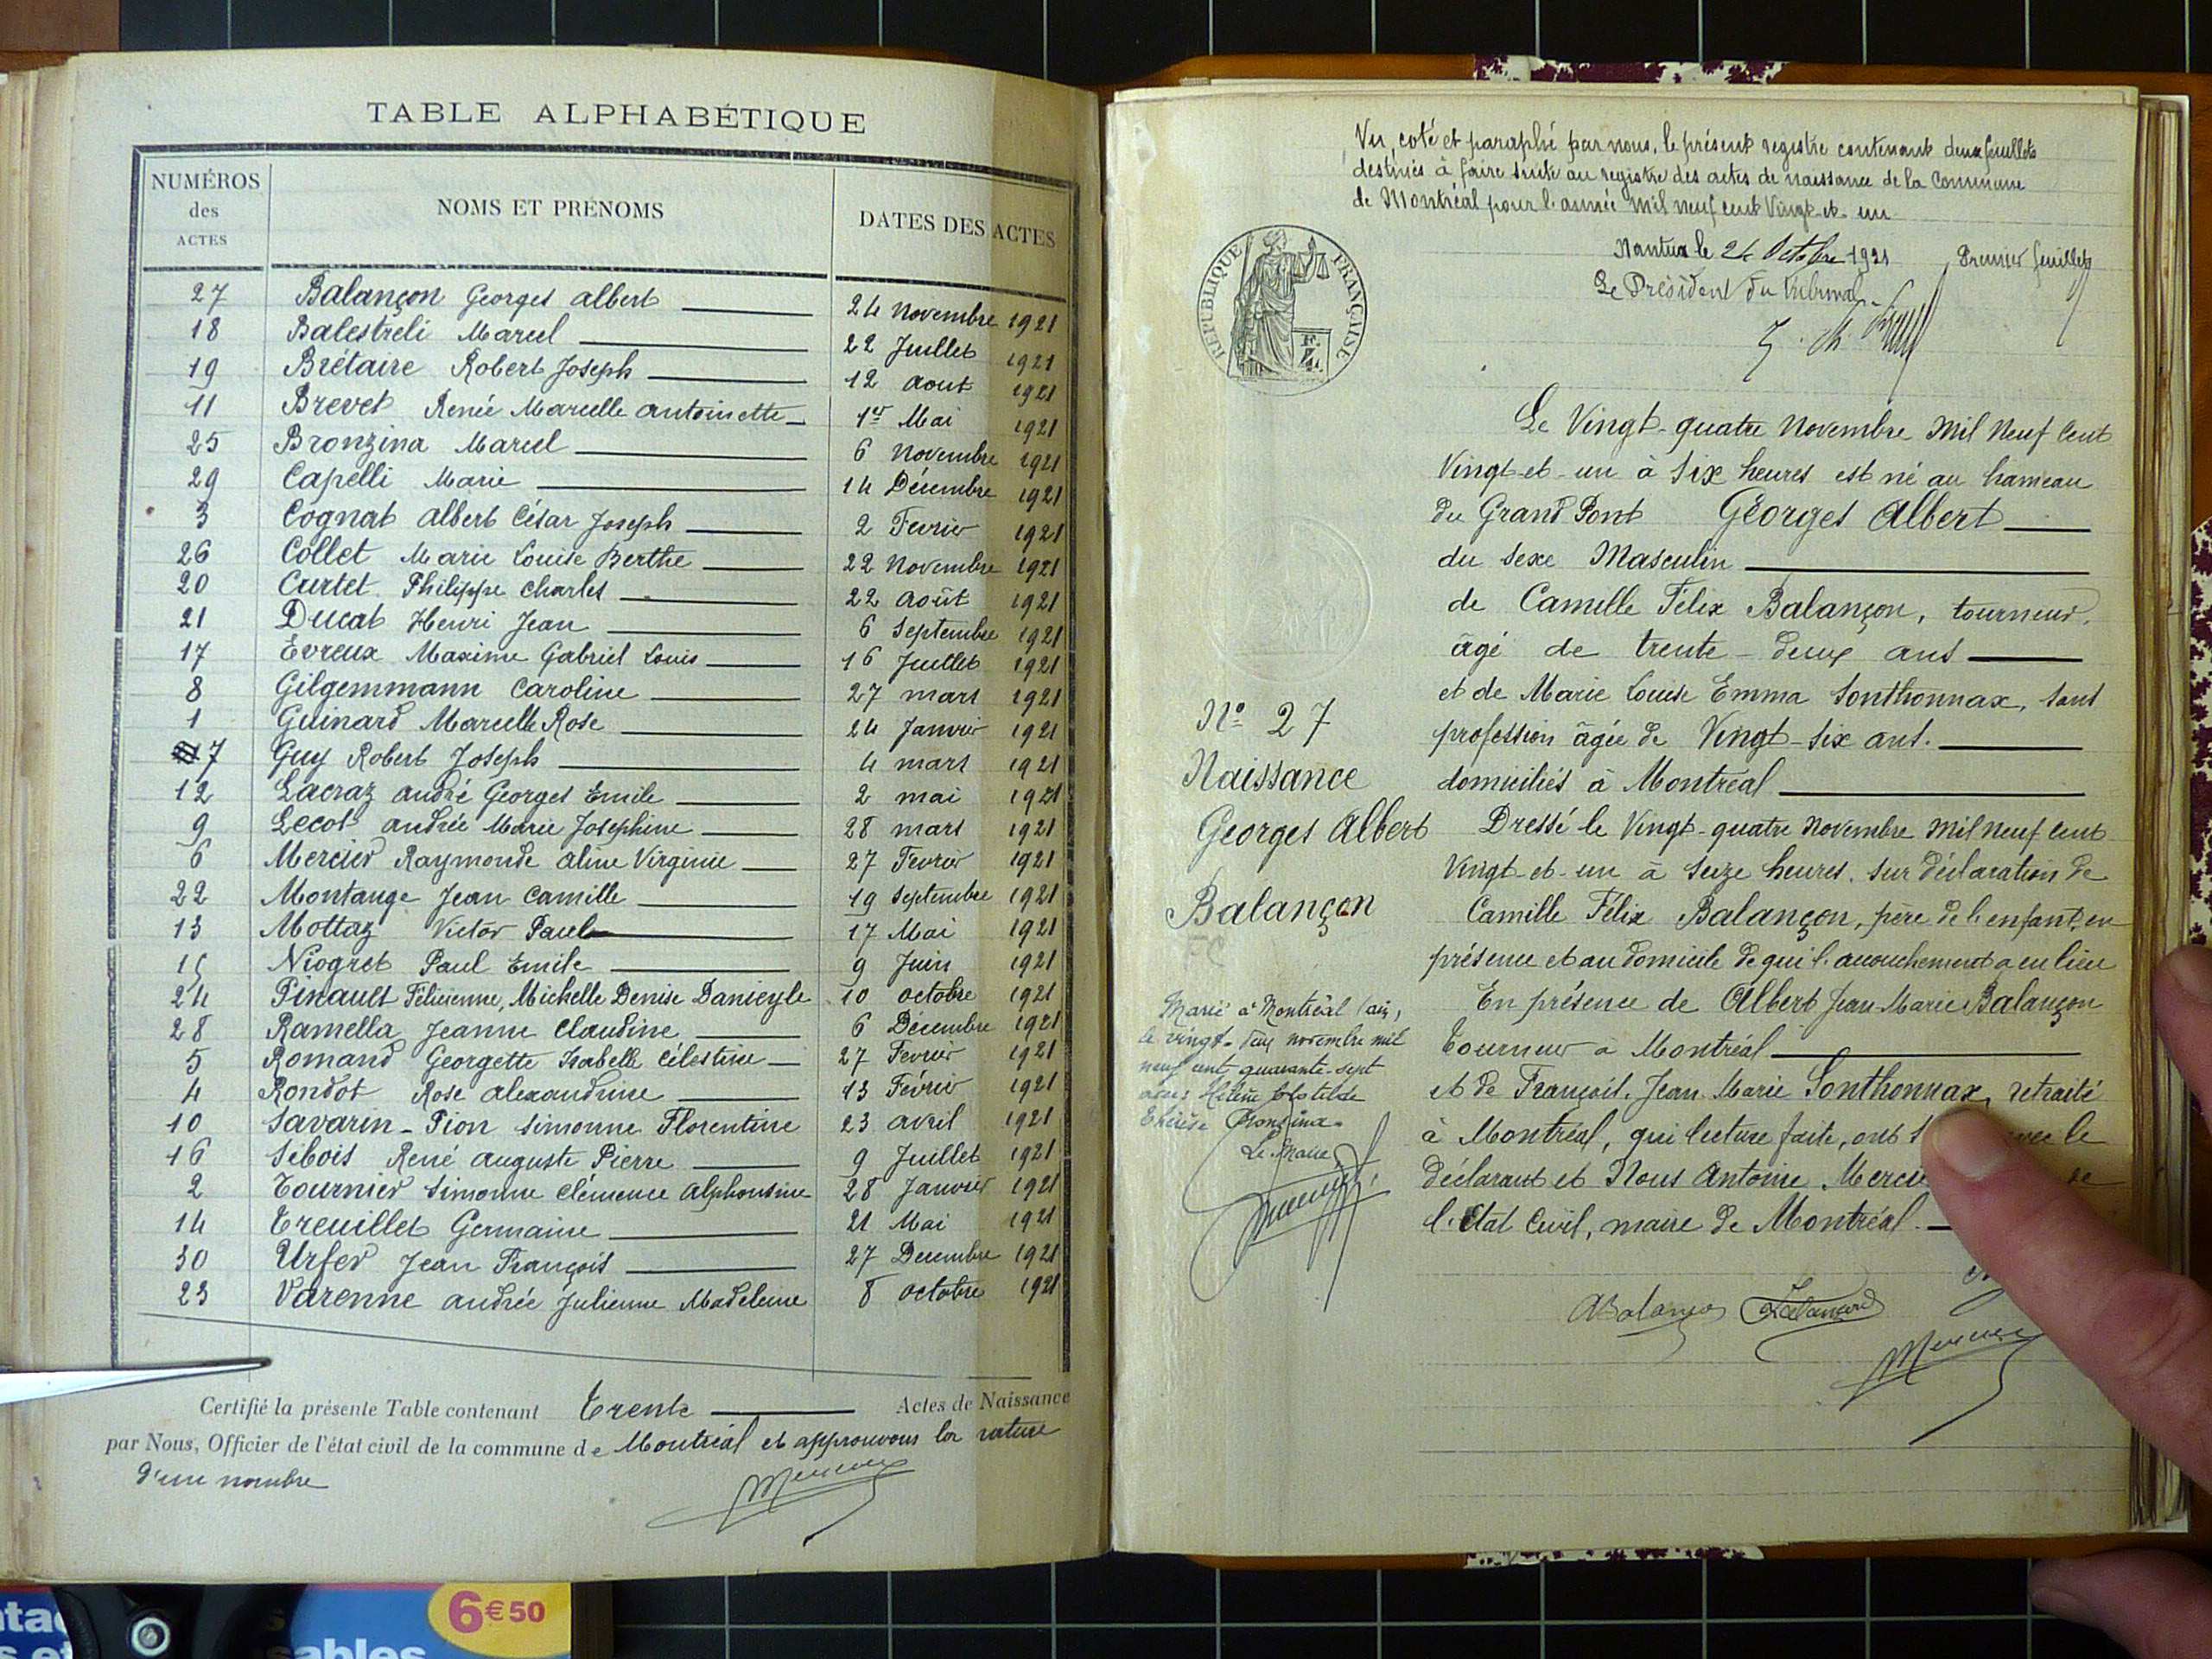 TABLE ALPHABÉTIQUE
NUMÉROS des ACTES NOMS ET PRÉNOMS DATES DES ACTES
27 Balançon Georges Albert 24 Novembre 1921
18 Balestreli Marcel 22 Juillet 1921
19 Brétaire Robert Joseph 12 aout 1921
11 Brevet Renée Marcelle antoinette 1er Mai 1921
25 Bronzina Marcel 6 Novembre 1921
29 Capelli Marie 14 Décembre 1921
3 Cognat Albert César Joseph 2 Fevrier 1921
26 Collet Marie Louise Berthe 22 Novembre 1921
20 Curtet Philippe Charles 22 août 1921
21 Ducat Henri Jean 6 Septembre 1921
17 Evreux Maxime Gabriel Louis 16 Juillet 1921
8 Gilgemmann Caroline 27 mars 1921
1 Guinard Marcelle Rose 24 Janvier 1921
7 Guy Robert Joseph 4 mars 1921
12 Lacraz andré Georges Emile 2 mai 1921
9 Lecot andrée Marie Josephine 28 mars 1921
6 Mercier Raymonde aline Virginie 27 Fevrier 1921
22 Montange Jean Camille 19 Septembre 1921
13 Mottaz Victor Paul 17 Mai 1921
15 Niogret Paul Emile 9 Juin 1921
24 Pinault Félicienne, Michelle Denise Danieyle 10 octobre 1921
28 Ramella Jeanne Claudine 6 Décembre 1921
5 Romand Georgette Isabelle Célestine 27 Fevrier 1921
4 Rondot Rose alexandrine 13 Février 1921
10 Savarin-Pion Simonne Florentine 23 avril 1921
16 Sibois René Auguste Pierre 9 Juillet 1921
2 Tournier Simonne Clémence Alphonsine 28 Janvier 1921
14 Treuillet Germaine 21 Mai 1921
30 Urfer Jean François 27 Decembre 1921
23 Varenne andrée Julienne Madeleine 8 octobre 1921
Certifié la présente Table contenant trente Actes de Naissance
par Nous, Officier de l'état civil de la commune de Montréal et approuvons la rature
d'un nombre
Mercier
6€50
sables
Vu, coté et paraphé par nous, le présent registre contenant deux feuillets
destinés à faire suite au registre des actes de naissance de la Commune
de Montréal pour l'année mil neuf cent Vingt-et-un
Nantua le 24 Octobre 1921 Premier feuillet
Le Président du tribunal
RÉPUBLIQUE FRANÇAISE
Le Vingt-quatre Novembre Mil Neuf Cent
Vingt-et-un à Six heures est né au hameau
du Grand Pont Georges Albert
du Sexe Masculin
de Camille Félix Balançon, tourneur,
âgé de trente-deux ans
et de Marie Louise Emma Sonthonnax, sans
profession âgée de Vingt-six ans.
domiciliés à Montréal
Dressé le Vingt-quatre Novembre Mil Neuf Cent
Vingt-et-un à Seize heures. Sur déclaration de
Camille Félix Balançon, père de l'enfant, en
présence et au domicile de qui l'accouchement a eu lieu
En présence de Albert Jean-Marie Balançon
Tourneur à Montréal
et de François, Jean Marie Sonthonnax, retraité
à Montréal, qui lecture faite, ont avec le
déclarant et Nous Antoine de
l'Etat Civil, maire de Montréal.
No 27
Naissance
Georges Albert
Balançon
Marié à Montréal (ain)
le vingt-deux novembre mil
neuf cent quarante-sept
avec Hélène Clotilde
Thérèse Bronzina
Le Maire
ABalançon Balançon
Mercier